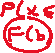 P(X≤
F(b)